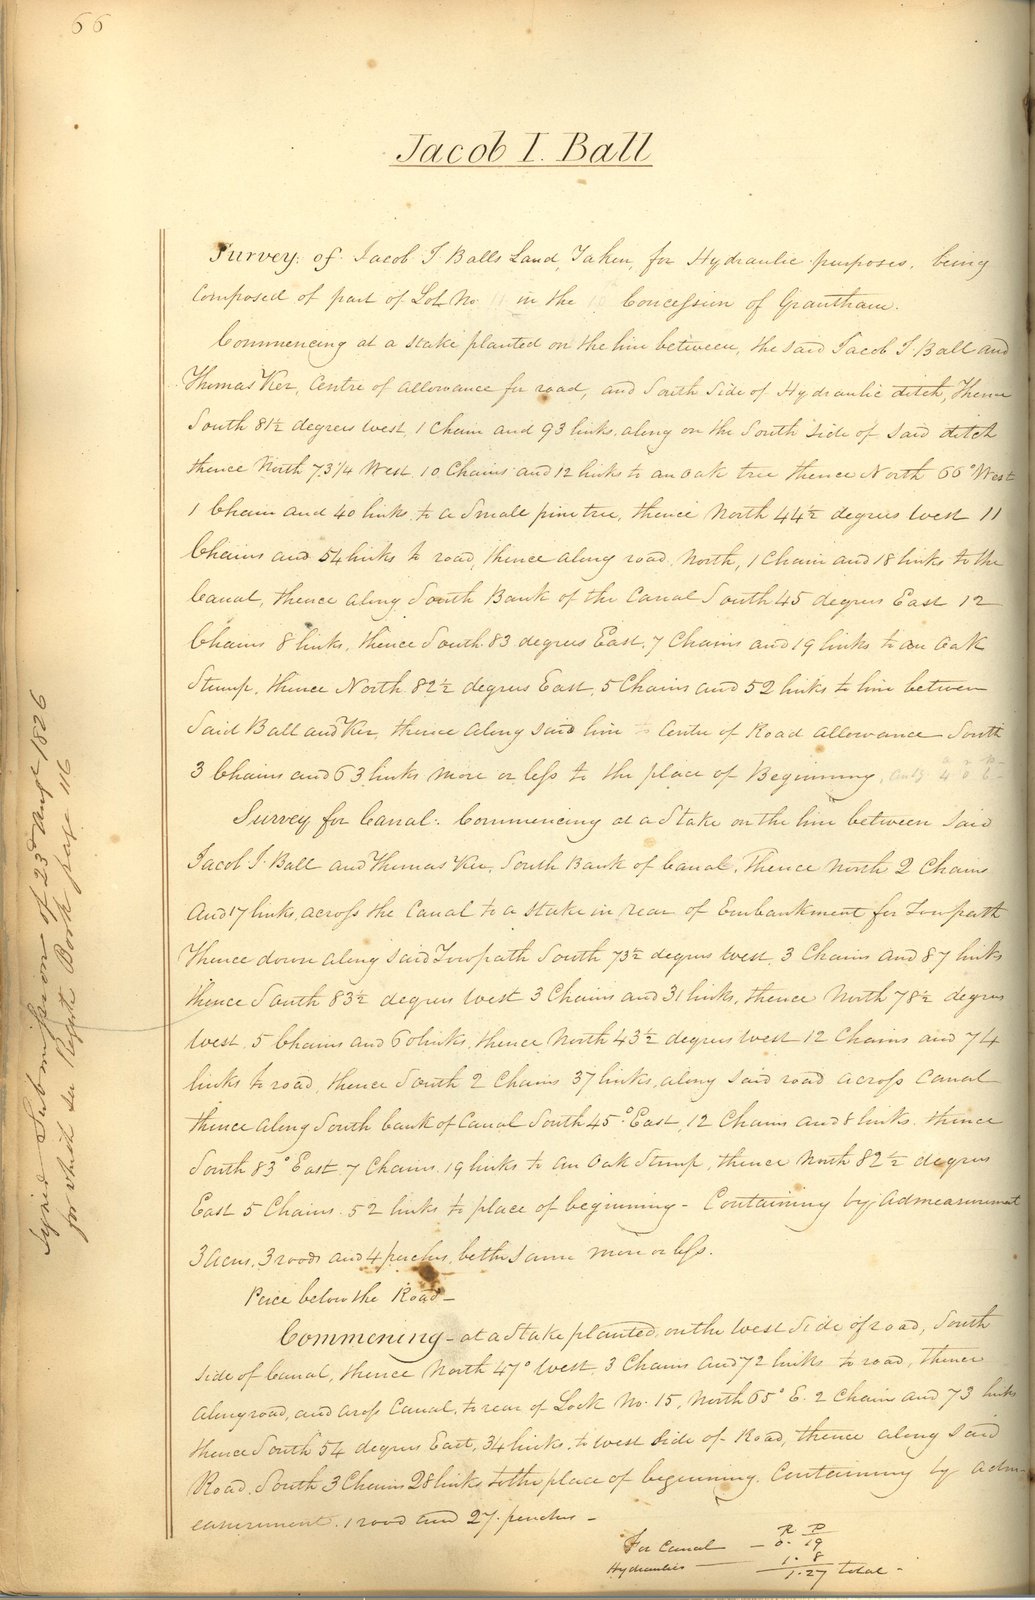 66
Jacob I. Ball
Survey of Jacob I Balls Land, Taken, for Hydraulic purposes, being
composed of part of Lot No 11 in the 10th Concession of Grantham.
Commencing at a stake planted on the line between, the said Jacob I Ball and
Thomas Ker, Centre of allowance for road, and South Side of Hydraulic ditch, Thence
South 81½ degrees west, 1 Chain and 93 links, along on the South side of said ditch
thence North 73¼ West 10 Chains and 12 links to an oak tree thence North 66° West
1 Chain and 40 links, to a small pine tree, thence North 44½ degrees West 11
Chains and 54 links to road, thence along road North, 1 Chain and 18 links to the
Canal, thence along South Bank of the Canal South 45 degrees East 12
Chains 8 links, thence South 83 degrees East, 7 Chains and 19 links to an Oak
Stump, thence North 82½ degrees East, 5 Chains and 52 links to line between
Said Ball and Ker, thence along said line to Centre of Road allowance South
3 Chains and 63 links more or less to the place of Beginning, 4 0 6
Survey for Canal: Commencing at a Stake on the line between said
Jacob I. Ball and Thomas Ker, South Bank of Canal, Thence North 2 Chains
And 17 links, across the Canal to a stake in rear of Embankment for Towpath
Thence down along said Towpath South 73½ degrees West, 3 Chains and 87 links
thence South 83½ degrees West 3 Chains and 31 links, thence North 78½ degrees
West, 5 Chains and 60 links, thence North 43½ degrees West 12 Chains and 74
links to road, thence South 2 Chains 37 links, along said road across Canal
thence along South bank of Canal South 45° East, 12 Chains and 8 links, thence
South 83° East 7 Chains 19 links to an Oak Stump, thence North 82½ degrees
East 5 Chains 52 links to place of beginning - Containing by Admeasurement
3 Acres, 3 roods and 4 perches, be the same more or less.
Peice below the Road -
Commencing - at a Stake planted, on the West Side of road, South
Side of Canal, thence North 47° West, 3 Chains and 72 links to road, thence
along road, and across Canal, to rear of Lock No. 15, North 65° E. 2 Chain and 73 links
thence South 54 degrees East, 34 links, to West side of Road, thence along said
Road South 3 Chains 28 links to the place of beginning, Containing by adm-
easurement 1 rood and 27 perches -
R. P
For Canal - 0. 19
Hydraulics - 1. 8
1.27 total -
Signed Submission of 23rd Augt 1826
for which see Registr Book page 116